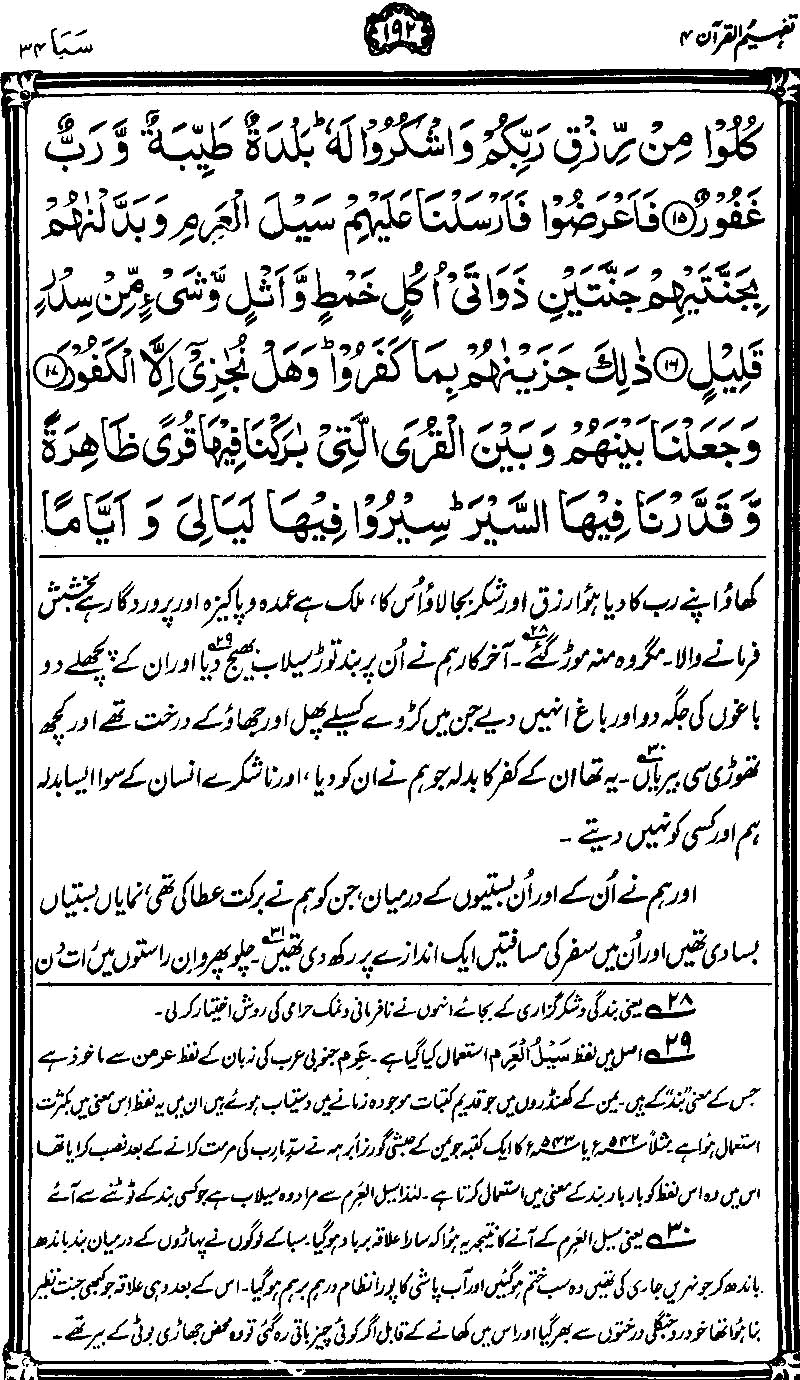 تفہیم القرآن ۴
۱۹۲
سَبَا ۳۴
كُلُوْا مِنْ رِّزْقِ رَبِّكُمْ وَاشْكُرُوْا لَهٗ ؕ بَلْدَةٌ طَيِّبَةٌ وَّ رَبٌّ
غَفُوْرٌ ﴿۱۵﴾ فَاَعْرَضُوْا فَاَرْسَلْنَا عَلَيْهِمْ سَيْلَ الْعَرِمِ وَ بَدَّلْنٰهُمْ
بِجَنَّتَيْهِمْ جَنَّتَيْنِ ذَوَاتَىْ اُكُلٍ خَمْطٍ وَّ اَثْلٍ وَّ شَىْءٍ مِّنْ سِدْرٍ
قَلِيْلٍ ﴿۱۶﴾ ذٰلِكَ جَزَيْنٰهُمْ بِمَا كَفَرُوْا ؕ وَ هَلْ نُجٰزِىْۤ اِلَّا الْكَفُوْرَ ﴿۱۷﴾
وَ جَعَلْنَا بَيْنَهُمْ وَ بَيْنَ الْقُرَى الَّتِىْ بٰرَكْنَا فِيْهَا قُرًى ظَاهِرَةً
وَّ قَدَّرْنَا فِيْهَا السَّيْرَ ؕ سِيْرُوْا فِيْهَا لَيَالِىَ وَ اَيَّامًا
کھاؤ اپنے رب کا دیا ہوا رزق اور شکر بجا لاؤ اُس کا، ملک ہے عمدہ و پاکیزہ اور پروردگار ہے بخشش
فرمانے والا۔ مگر وہ منہ موڑ گئے۲۸۔ آخر کار ہم نے اُن پر بند توڑ سیلاب بھیج دیا۲۹ اور ان کے پچھلے دو
باغوں کی جگہ دو اور باغ انہیں دیے جن میں کڑوے کسیلے پھل اور جھاؤ کے درخت تھے اور کچھ
تھوڑی سی بیریاں۳۰۔ یہ تھا ان کے کفر کا بدلہ جو ہم نے ان کو دیا، اور ناشکرے انسان کے سوا ایسا بدلہ
ہم اور کسی کو نہیں دیتے۔
اور ہم نے اُن کے اور اُن بستیوں کے درمیان، جن کو ہم نے برکت عطا کی تھی، نمایاں بستیاں
بسا دی تھیں اور اُن میں سفر کی مسافتیں ایک اندازے پر رکھ دی تھیں۳۱۔ چلو پھرو ان راستوں میں رات دن
۲۸ یعنی بندگی و شکر گزاری کے بجائے انہوں نے نافرمانی و نمک حرامی کی روش اختیار کر لی۔
۲۹ اصل میں لفظ سَیْلُ الْعَرِم استعمال کیا گیا ہے۔ عَرِم جنوبی عرب کی زبان کے لفظ عرمن سے ماخوذ ہے
جس کے معنی "بند" کے ہیں۔ یمن کے کھنڈروں میں جو قدیم کتبات موجودہ زمانے میں دستیاب ہوئے ہیں ان میں یہ لفظ اِس معنی میں بکثرت
استعمال ہوا ہے۔ مثلاً ۵۴۲ء یا ۵۴۳ء کا ایک کتبہ جو یمن کے حبشی گورنر اَبرہہ نے سدِّ مارِب کی مرمت کرانے کے بعد نصب کرایا تھا
اس میں وہ اس لفظ کو بار بار بند کے معنی میں استعمال کرتا ہے۔ لہٰذا سیل العَرِم سے مراد وہ سیلاب ہے جو کسی بند کے ٹوٹنے سے آئے
۳۰ یعنی سیل العرِم کے آنے کا نتیجہ یہ ہوا کہ سارا علاقہ برباد ہو گیا۔ سبا کے لوگوں نے پہاڑوں کے درمیان بند باندھ
باندھ کر جو نہریں جاری کی تھیں وہ سب ختم ہو گئیں اور آب پاشی کا پورا نظام درہم برہم ہو گیا۔ اس کے بعد وہی علاقہ جو کبھی جنت نظیر
بنا ہوا تھا خود رَو جنگلی درختوں سے بھر گیا اور اس میں کھانے کے قابل اگر کوئی چیز باقی رہ گئی تو وہ محض جھاڑی بوٹی کے بیر تھے۔